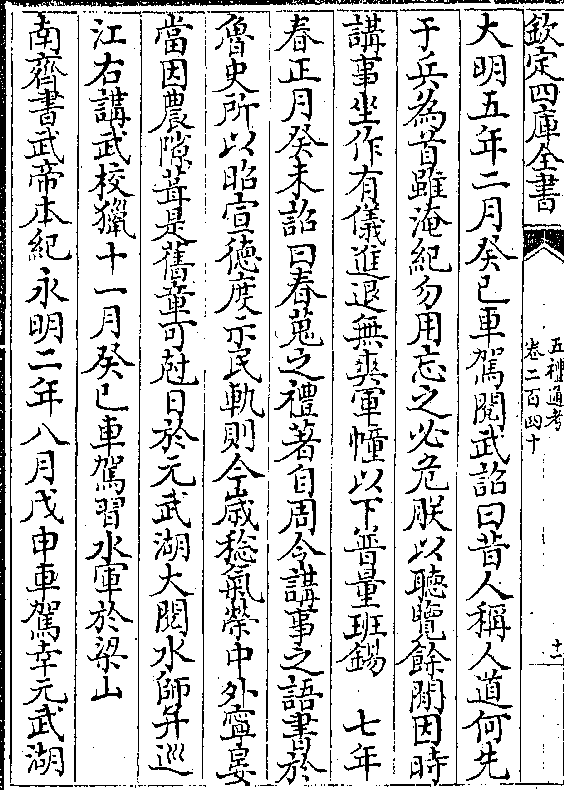 欽定四庫全書
五禮通考
卷二百四十
十一
大明五年二月癸巳車駕閱武詔曰昔人稱人道何先
于兵為首雖淹紀勿用忘之必危朕以聽覽餘閒因時
講事坐作有儀進退無爽軍幢以下普量班錫 七年
春正月癸未詔曰春蒐之禮著自周令講事之語書於
魯史所以昭宣徳度示民軌則今歲稔氣榮中外寧晏
當因農隙葺是舊章可尅日於元武湖大閱水師并巡
江右講武校獵十一月癸巳車駕習水軍於梁山
南齊書武帝本紀永明二年八月戊申車駕幸元武湖